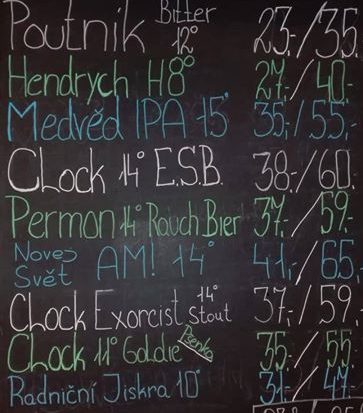 Poutník Bitter 12° 23,-/35,-
Hendrych H8° 27,-/40,-
Medvěd IPA 15° 35,-/55,-
CLock 14° E.S.B. 38,-/60,-
Permon 14° Rauch Bier 37,-/59,-
Nový Svět AM! 14° 41,-/65,-
CLock Exorcist 14° Stout 37,-/59,-
CLock 11° Goldie Pšenka 35,-/55,-
Radniční Jiskra 10° 31,-/47,-